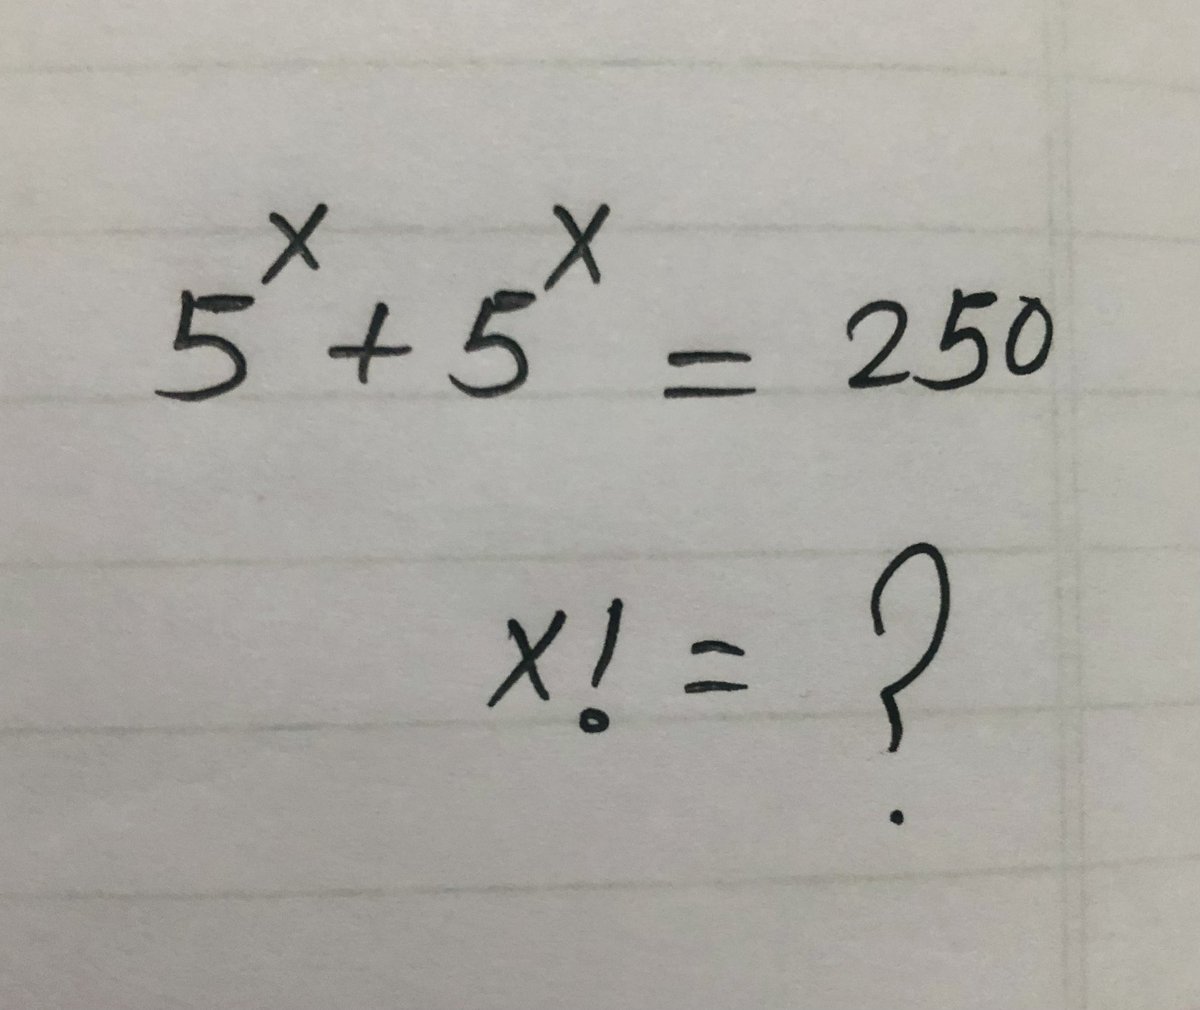 5^x + 5^x = 250
x! = ?